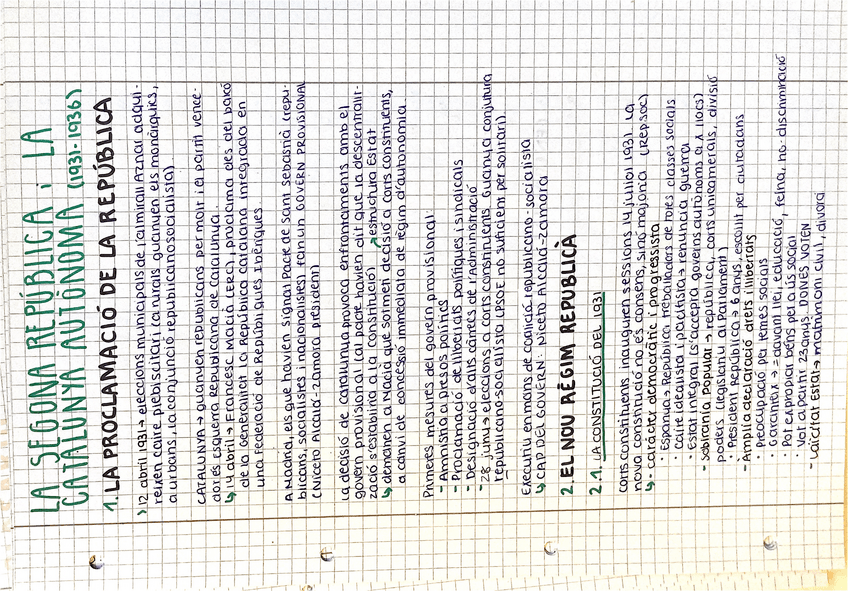 LA SEGONA REPÚBLICA i LA
CATALUNYA AUTÒNOMA (1931-1936)
1. LA PROCLAMACIÓ DE LA REPÚBLICA
> 12 abril 1931 → eleccions municipals de l'almirall Aznar adqui-
reixen caire plebiscitari (a rurals guanyen els monàrquiks,
a urbans, la conjunció republicanosocialista)
CATALUNYA → guanyen republicans per molt i el partit vence-
dor és Esquerra Republicana de Catalunya.
↳ 14 abril → Francesc Macià (ERC), proclama des del balcó
de la Generalitat la República catalana integrada en
una Federació de Repúbliques Ibèriques
A Madrid, els que havien signat Pacte de Sant Sebastià (repu-
blicans, socialistes i nacionalistes) fan un GOVERN PROVISIONAL
(Niceto Alcalá-Zamora president)
La decisió de Catalunya provoca enfrontaments amb el
govern provisional (al pacte havien dit que la descentralit-
zació s'establiria a la constitució) ↗ estructura Estat
↳ demanen a Macià que sotmeti decisió a corts constituents,
a canvi de concessió immediata de règim d'autonomia
Primeres mesures del govern provisional:
- Amnistia a presos polítics
- Proclamació de llibertats polítiques i sindicals
- Designació d'alts càrrecs de l'Administració
- 28 juny → eleccions a corts constituents. Guanya conjuntura
republicano-socialista (PSOE no suficient per solitari).
Executiu en mans de coalició republicano-socialista
↳ CAP DEL GOVERN: Niceto Alcalá-Zamora
2. EL NOU RÈGIM REPUBLICÀ
2.1. LA CONSTITUCIÓ DEL 1931
Corts constituents inauguren sessions 14 juliol 1931. La
nova constitució no és consens, sinó majoria (REP.SOC)
↳ - caràcter democràtic i progressista
· Espanya → República treballadors de totes classes socials
· Caire idealista i pacifista → renuncia guerra
· Estat integral (s'accepta governs autònoms a x llocs)
- Sobirania popular → república, corts unicamerals, divisió
poders (legislatiu al Parlament)
· President República → 6 anys, escollit per ciutadans
- Àmplia declaració drets i llibertats
· Preocupació pa temes socials
· Garanteix → = davant llei, educació, feina, no discriminació
· Pot expropiar béns pel a ús social
· Vot a partir 23 anys. DONES VOTEN
- Laïcitat Estat → matrimoni civil, divorci